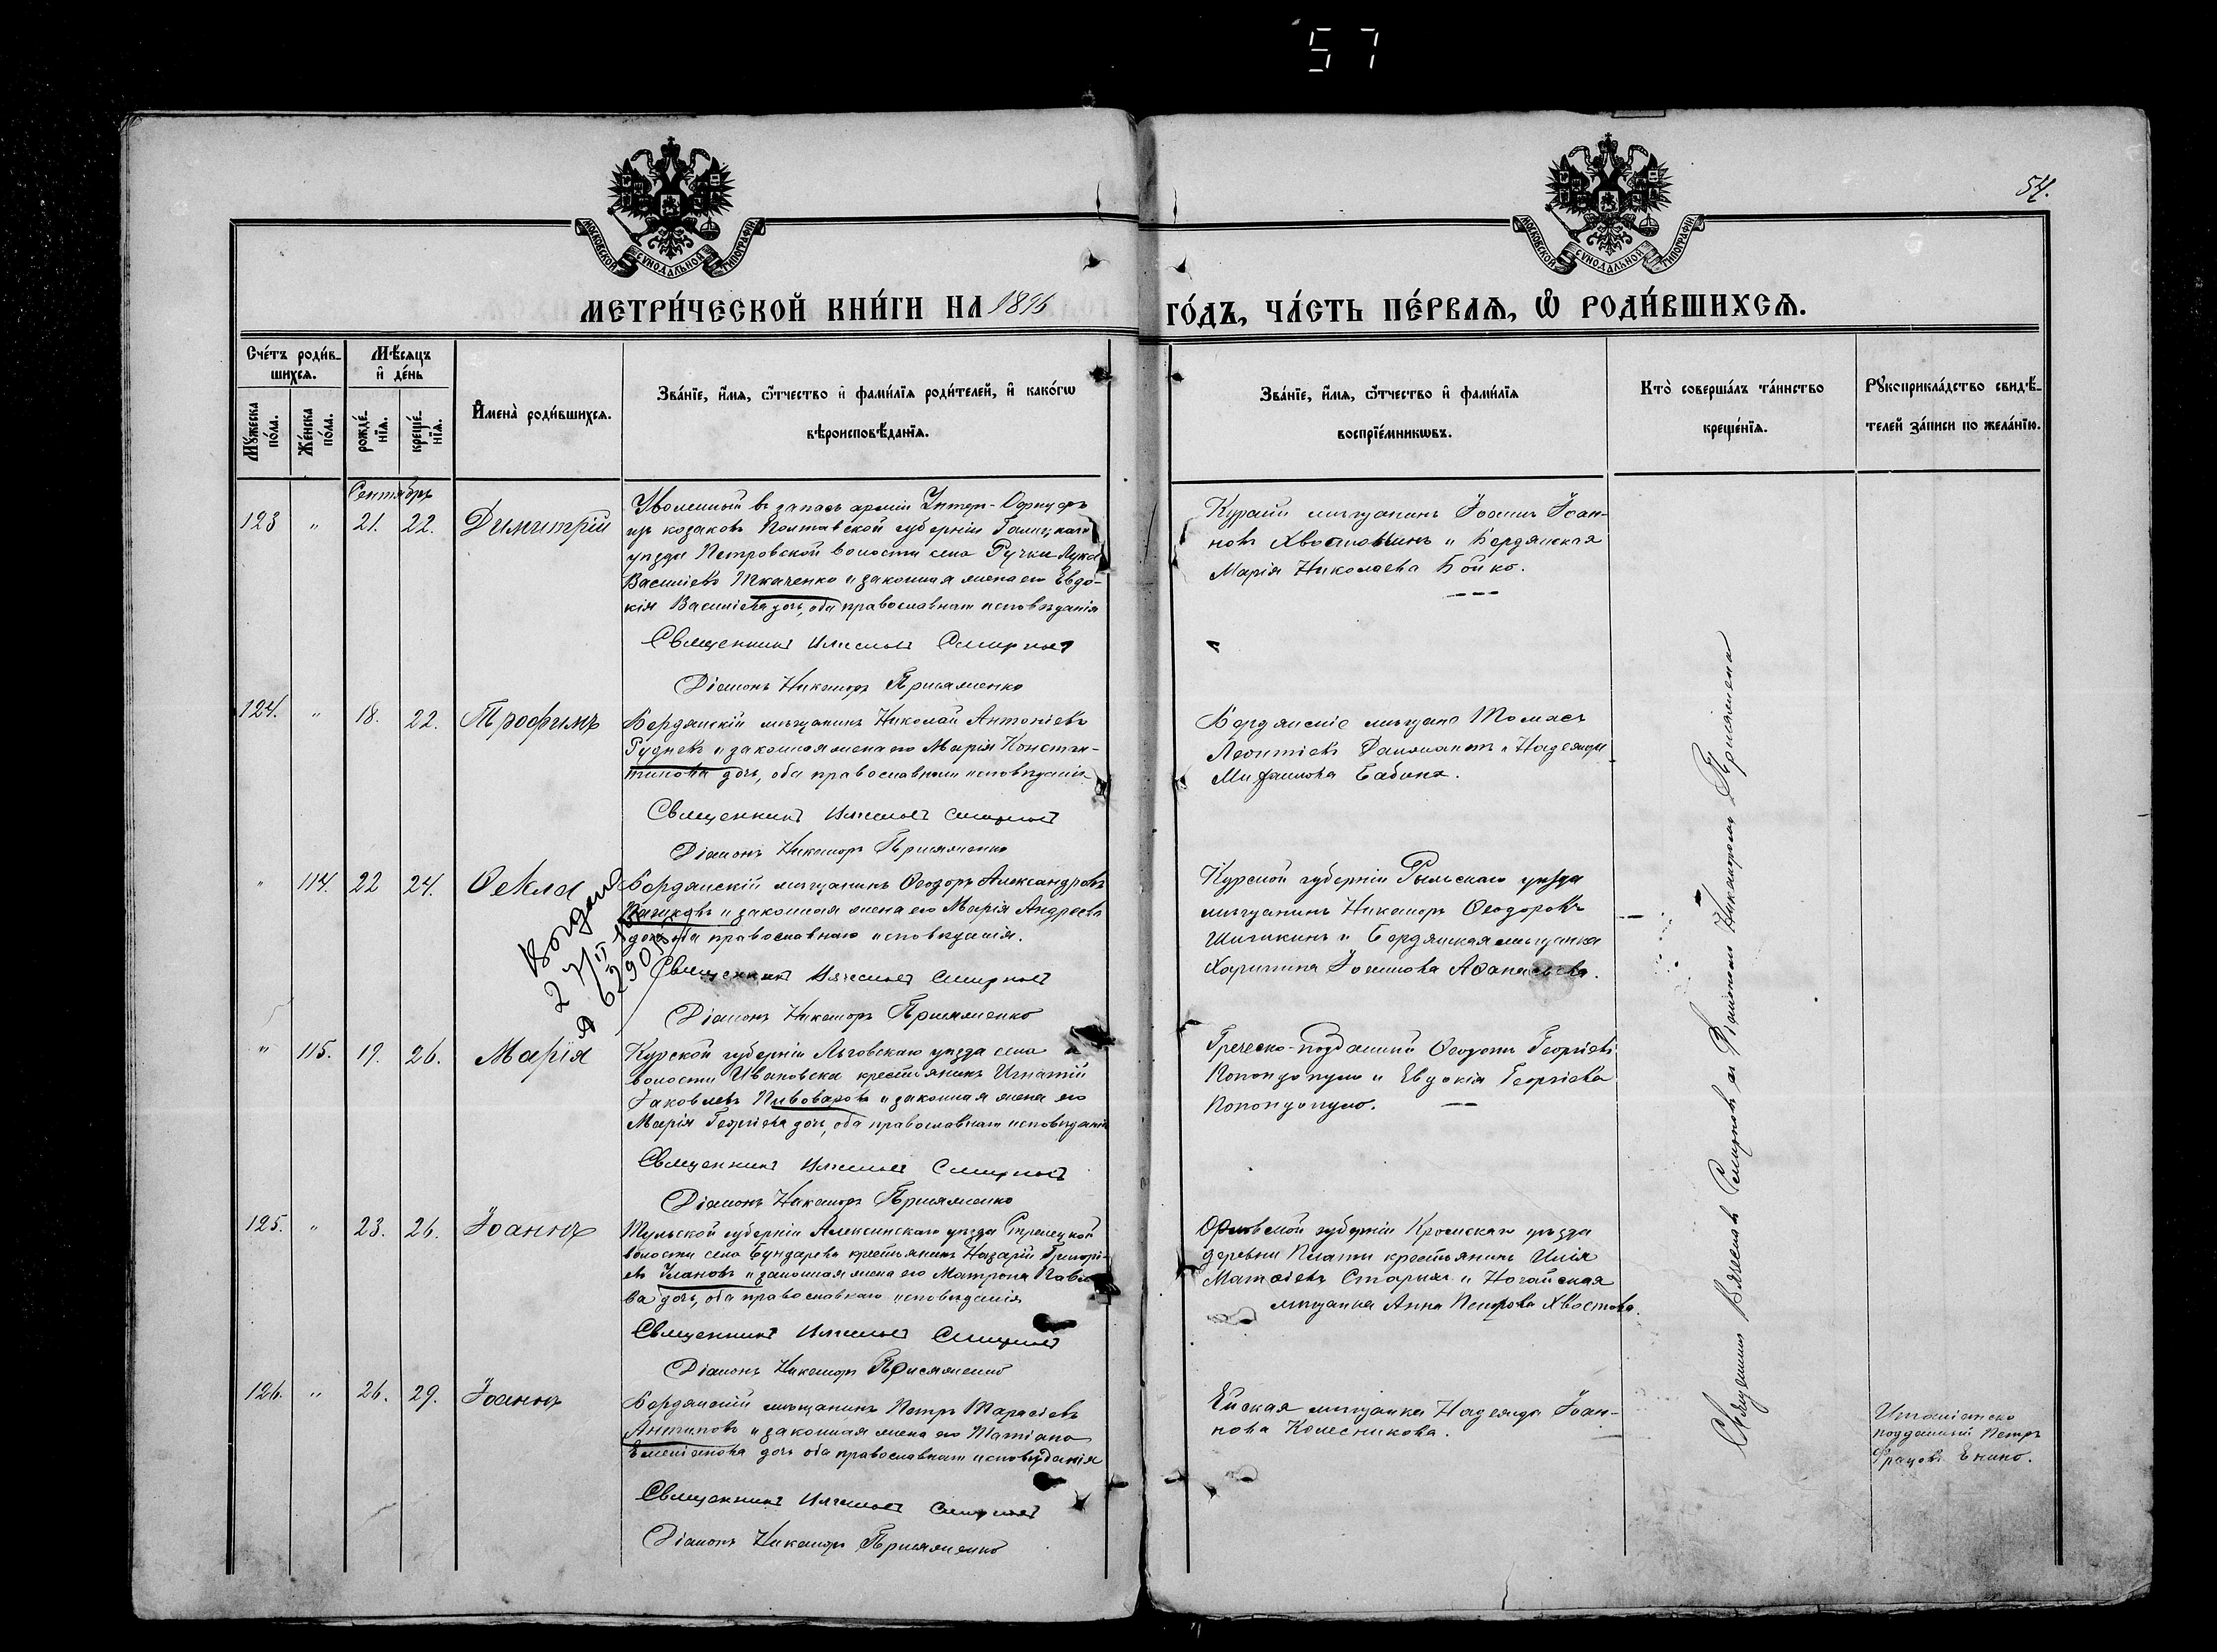 57
54.
МОСКОВСКОЙ СѴНОДАЛЬНОЙ ТИПОГРАФІИ
МОСКОВСКОЙ СѴНОДАЛЬНОЙ ТИПОГРАФІИ
МЕТРИ́ЧЕСКОЙ КНИ́ГИ НА 1896
ГО́ДЪ, ЧА́СТЬ ПЕ́РВАѦ, Ѡ҆ РОДИ́ВШИХСѦ.
Сче́тъ роди́в-
шихсѧ.
Мꙋ́жеска по́ла.
Же́нска по́ла.
Мѣ́сѧцъ
и҆ де́нь
рожде́-нїѧ.
креще́-нїѧ.
И҆мена̀ роди́вшихсѧ.
Зва́нїе, и҆́мѧ, ѻ҆́тчество и҆ фами́лїѧ роди́телей, и҆ како́гѡ
вѣроисповѣ́данїѧ.
Зва́нїе, и҆́мѧ, ѻ҆́тчество и҆ фами́лїѧ
воспрїе́мникѡвъ.
Кто̀ соверша́лъ та́инство
креще́нїѧ.
Рꙋкоприкла́дство свидѣ́-
телей за́писи по жела́нїю.
Сентябрь
123 " 21. 22. Димитрій
Уволенный въ запасъ арміи Унтеръ-Офицеръ
изъ козаковъ Полтавской губерніи Гадяцкаго
уѣзда Петровской волости села Ручки Лука
Василіевъ Ткаченко и законная жена его Евдо-
кія Василіева дочь, оба православнаго исповѣданія
Священникъ Вячеславъ Смирновъ
Діаконъ Никаноръ Присяженко
мѣщанинъ Іоаннъ Іоан-
новъ и Бердянская
Марія Николаева Бойко.
124. " 18. 22. Трофимъ
Бердянскій мѣщанинъ Николай Антоніевъ
Рудневъ и законная жена его Марія Констан-
тинова дочь, оба православнаго исповѣданія
Священникъ Вячеславъ Смирновъ
Діаконъ Никаноръ Присяженко
Бердянскіе мѣщане Томасъ
Леонтіевъ и Надежда
Михаилова Бабина.
" 114. 22 24. Ѳекла
Бердянскій мѣщанинъ Ѳеодоръ Александровъ
и законная жена его Марія Андреева
дочь, оба православнаго исповѣданія.
Священникъ Вячеславъ Смирновъ
Діаконъ Никаноръ Присяженко
Курской губерніи Рыльскаго уѣзда
мѣщанинъ Никаноръ Ѳеодоровъ
Шишкинъ и Бердянская мѣщанка
Харитина Іоакимова Аѳанасьева.
" 115. 19. 26. Марія
Курской губерніи Льговскаго уѣзда села и
волости Ивановска крестьянинъ Игнатій
Іаковлевъ Пивоваровъ и законная жена его
Марія Георгіева дочь, оба православнаго исповѣданія
Священникъ Вячеславъ Смирновъ
Діаконъ Никаноръ Присяженко
Греческо-подданный Ѳеодотъ Георгіевъ
Попондопуло и Евдокія Георгіева
Попондопуло.
125. " 23. 26. Іоаннъ
Тульской губерніи Алексинскаго уѣзда Стрелецкой
волости села Бундарева крестьянинъ Назарій Григорі-
евъ Улановъ и законная жена его Матрона Павло-
ва дочь, оба православнаго исповѣданія
Священникъ Вячеславъ Смирновъ
Діаконъ Никаноръ Присяженко
Орловской губерніи Кромскаго уѣзда
деревни Плоты крестьянинъ Илія
Матѳіевъ Старыхъ и Ногайская
мѣщанка Анна Петрова Хвостова.
126. " 26. 29. Іоаннъ
Бердянскій мѣщанинъ Петръ Тарасіевъ
Антиповъ и законная жена его Татіана
Емеліанова дочь оба православнаго исповѣданія
Священникъ Вячеславъ Смирновъ
Діаконъ Никаноръ Присяженко
Ейская мѣщанка Надежда Іоан-
нова Колесникова.
Священникъ Вячеславъ Смирновъ съ Діакономъ Никаноромъ Присяженко
Италіанско
подданный Петръ